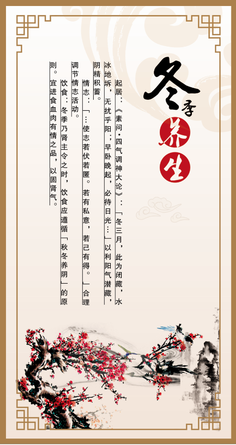 冬季养生
起居：《素问·四气调神大论》：「冬三月，此为闭藏，水
冰地坼，无扰乎阳；早卧晚起，必待日光…」以利阳气潜藏，
阴精积蓄。
情志：「…使志若伏若匿。若有私意，若己有得。」合理
调节情志活动。
饮食：冬季乃肾主令之时，饮食应遵循「秋冬养阴」的原
则。宜进食血肉有情之品，以固肾气。